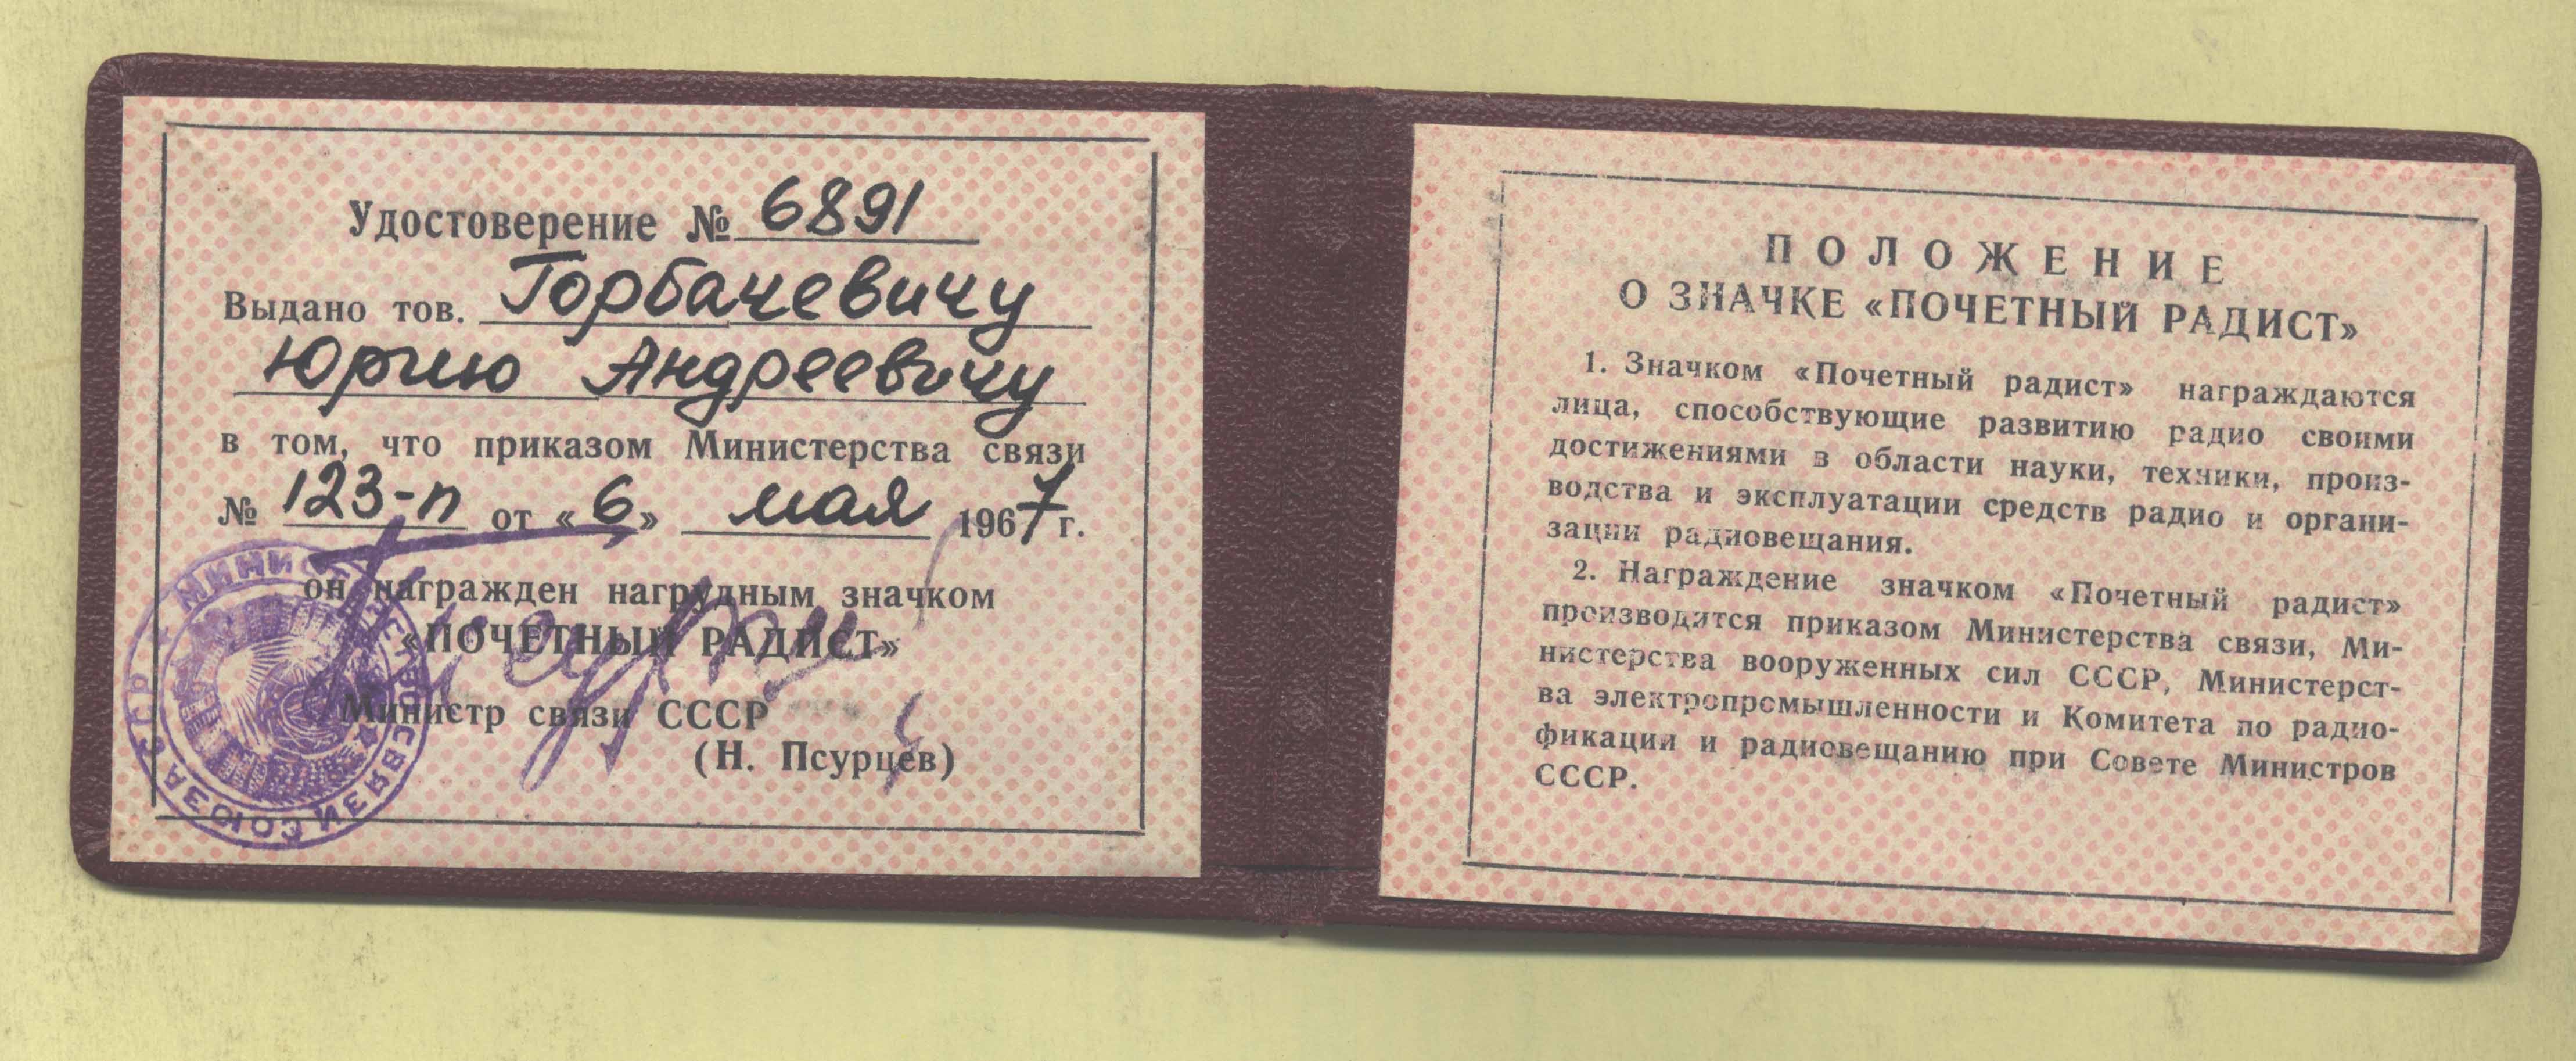 Удостоверение № 6891
Выдано тов. Горбачевичу
Юрию Андреевичу
в том, что приказом Министерства связи
№ 123-п от «6» мая 1967 г.
он награжден нагрудным значком
«ПОЧЕТНЫЙ РАДИСТ»
Министр связи СССР
(Н. Псурцев)
ПОЛОЖЕНИЕ
О ЗНАЧКЕ «ПОЧЕТНЫЙ РАДИСТ»
1. Значком «Почетный радист» награждаются
лица, способствующие развитию радио своими
достижениями в области науки, техники, произ-
водства и эксплуатации средств радио и органи-
зации радиовещания.
2. Награждение значком «Почетный радист»
производится приказом Министерства связи, Ми-
нистерства вооруженных сил СССР, Министерст-
ва электропромышленности и Комитета по радио-
фикации и радиовещанию при Совете Министров
СССР.